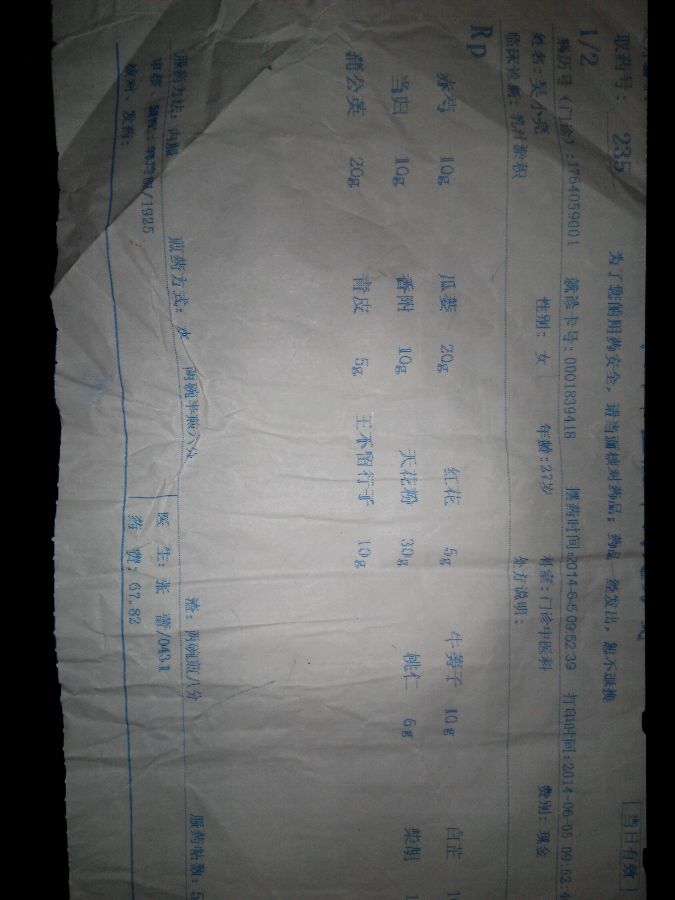 取药号: 235
当日有效
1/2
为了您的用药安全，请当面核对药品；药品一经发出，恕不退换
病历号(门诊):1764059001 就诊卡号:0001839418 摆药时间:2014-6-5 09:52:39 打印时间:2014-06-05 09:52:4
姓名:吴小亮 性别: 女 年龄:27岁 科室:门诊中医科 费别: 现金
临床诊断: 乳汁淤积 处方说明:
Rp
赤芍 10g 瓜蒌 20g 红花 5g 牛蒡子 10g 白芷 1
当归 10g 香附 10g 天花粉 30g 桃仁 6g 柴胡 1
蒲公英 20g 青皮 5g 王不留行子 10g
服药方法: 内服 煎药方式: 水 两碗半煎六分 渣: 两碗煎八分 服药帖数: 5
审核、调配: /1925 医 生: 张 蕾/0431
核对、发药: 药 费: 67.82